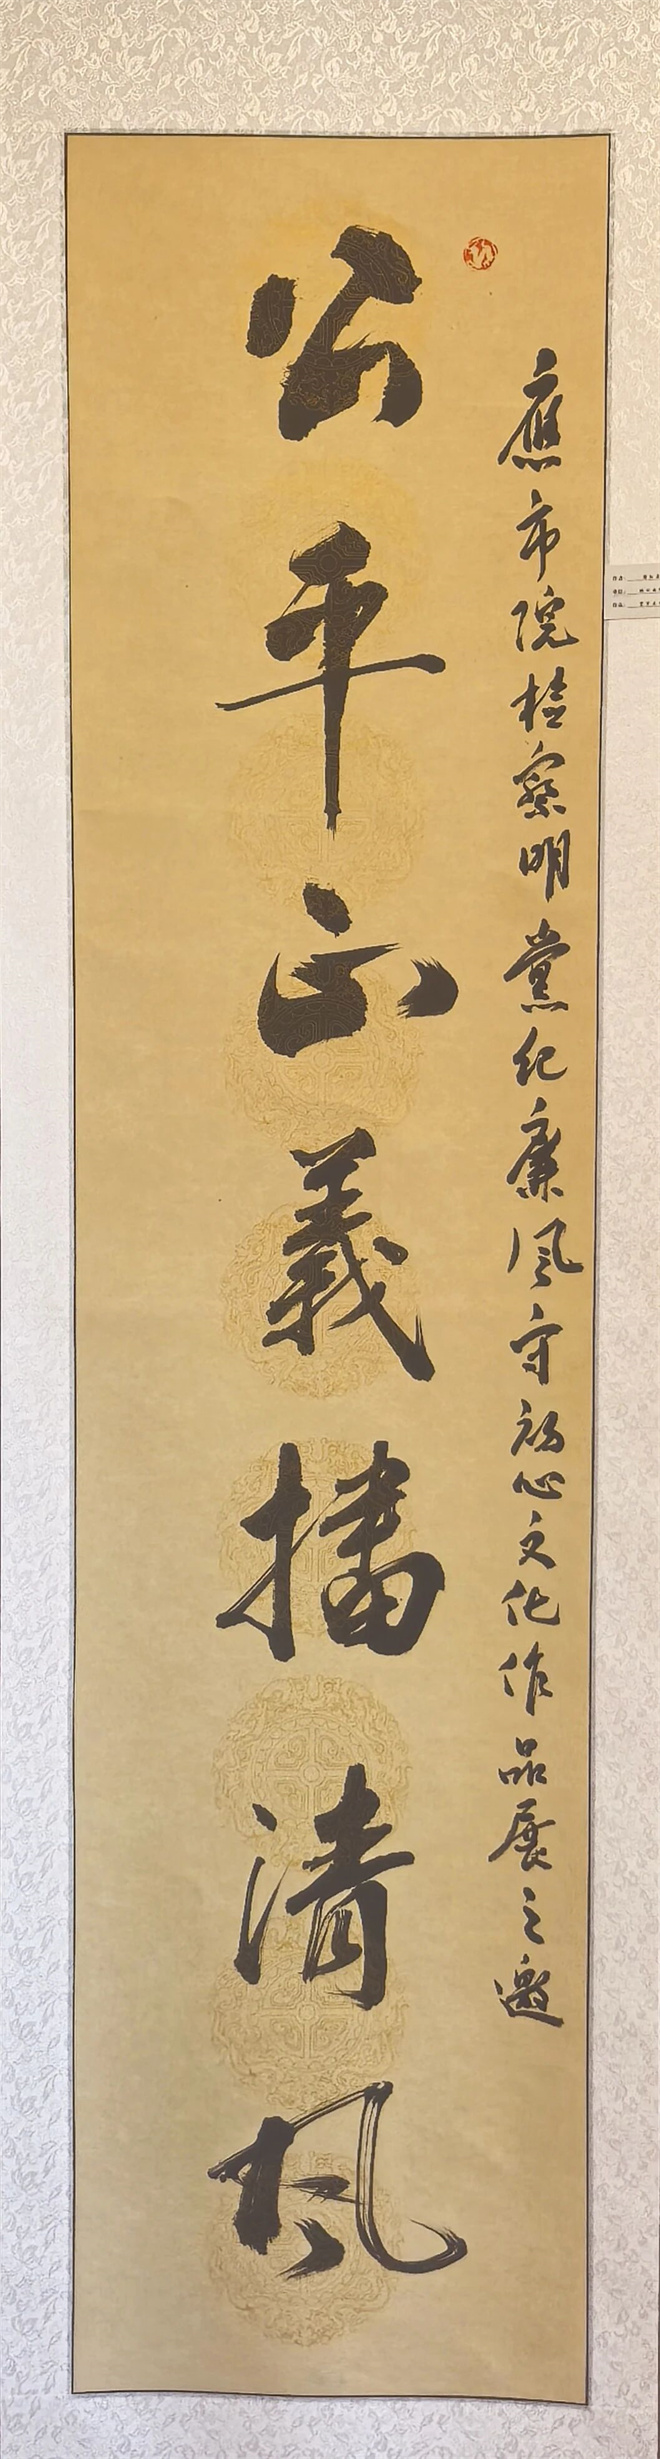 應市院检察明黨紀廉風守初心文化作品展之邀
公平正義播清風